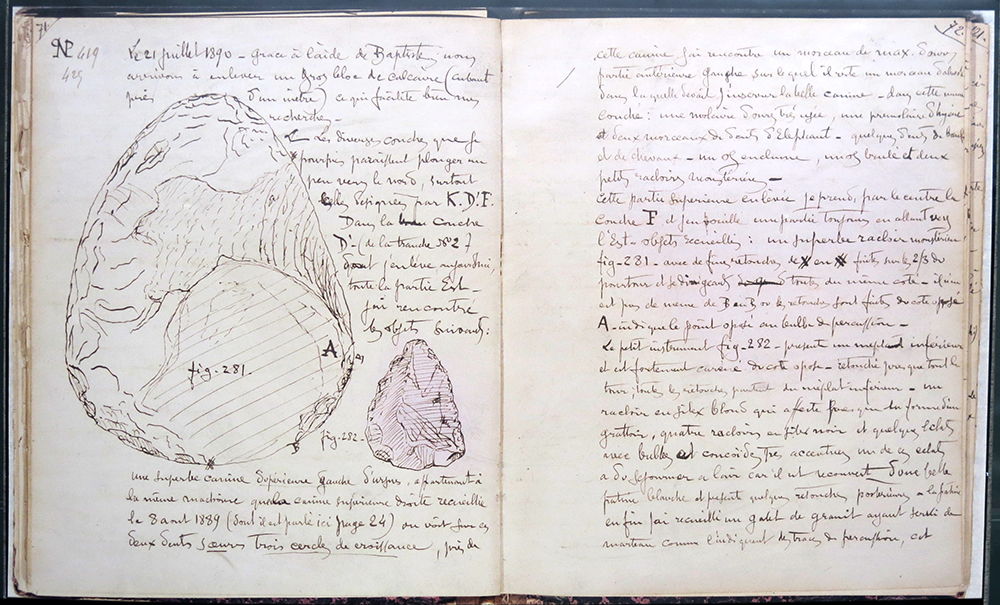 71.
Nº 619
425
Le 21 juillet 1890 - Grace à l'aide de Baptiste, nous
arrivons à enlever un gros bloc de calcaire (cubant
près d'un mètre) ce qui facilite bien mes
recherches -
Les diverses couches que je
pourpres paraissent plonger un
peu vers le nord, surtout
celles désignées par K. D'. F.
Dans la couche
D' - (de la tranche Nº 27
dont j'enlève aujourd'hui,
toute la partie Est -
j'ai rencontré
les objets suivants :
fig - 281.
A
fig - 282 -
une superbe canine supérieure gauche d'ursus, appartenant à
la même machoire que la canine inférieure droite recueillie
le 8 aout 1889 (dont il est parlé ici page 24) on voit sur ces
deux dents sœurs trois cercles de croissance, près de
72.
cette canine j'ai rencontré un morceau de max. d'ours
partie antérieure gauche sur lequel il reste un morceau
dans laquelle devait s'inserrer la belle canine - dans cette même
couche : une molaire d'ours très usée, une premolaire d'hyène
et deux morceaux de dents d'Elephant - quelques dents de
et de chevaux - un os enclume, un os brulé et deux
petits racloirs moustériens -
cette partie superieure enlevée je prend, par le centre la
couche F et j'en fouille une partie toujours en allant vers
l'Est - objets recueillis : un superbe racloir moustérien
fig - 281 - avec de fines retouches, de en faites sur les 2/3 du
pourtour et dirigeants toutes du même coté - il n'en
est pas de meme de B en où les retouches sont faites du coté oposé
A - indique le point oposé au bulbe de percussion -
Le petit instrument fig - 282 - present un meplat inférieur
et est fortement carené du coté oposé - retouché presque tout le
tour, toutes les retouches partent du méplat inférieur - un
racloir en silex blond qui affecte quelque peu la forme d'un
grattoir, quatre racloirs en silex noir et quelques éclats
avec bulbes et concoïdes très accentués un de ces eclats
a du sejourner a l'air car il est recouvert d'une belle
patine blanche et portant quelques retouches posterieures a la patine
enfin j'ai recueilli un galet de granit ayant servi de
marteau comme l'indiquent des traces de percussion, cet